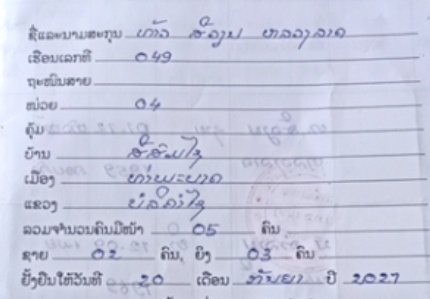 ຊື່ແລະນາມສະກຸນ ທ້າວ ສີລຸນ ຫລວງລາດ
ເຮືອນເລກທີ 049
ຖະໜົນສາຍ
ໜ່ວຍ 04
ຄຸ້ມ
ບ້ານ ສີສົມໄຊ
ເມືອງ ທ່າພະບາດ
ແຂວງ ບໍລິຄໍາໄຊ
ລວມຈໍານວນຄົນມີໜ້າ 05 ຄົນ
ຊາຍ 02 ຄົນ, ຍິງ 03 ຄົນ
ຢັ້ງຢືນໃຫ້ວັນທີ 20 ເດືອນ ກັນຍາ ປີ 2027